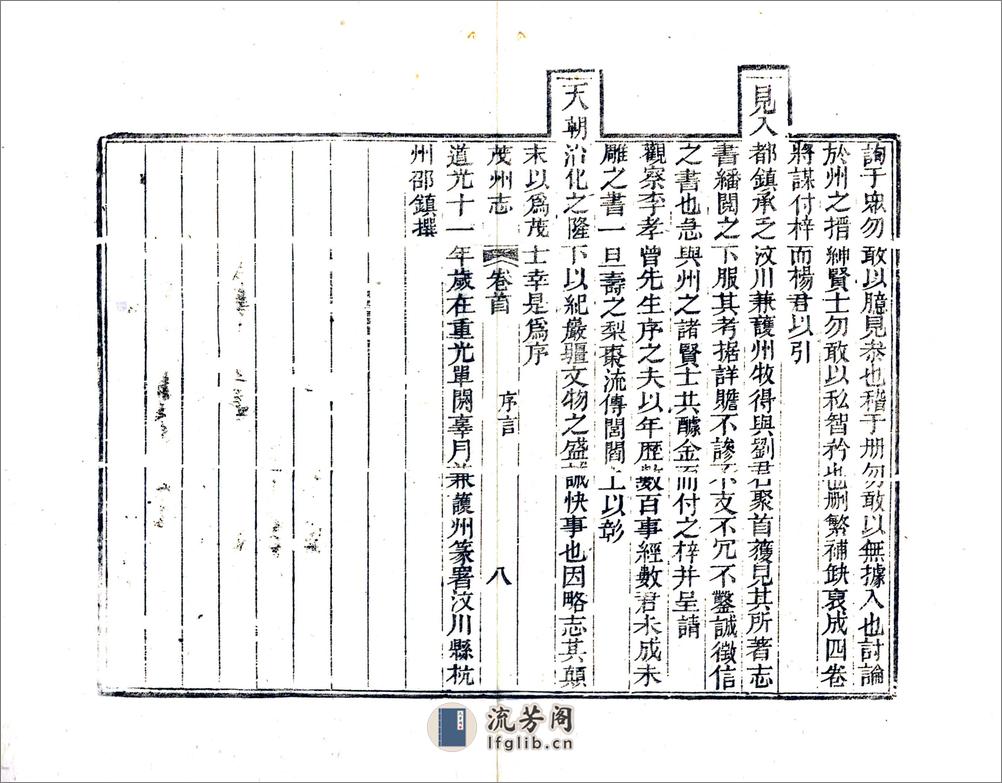 詢于衆勿敢以臆見叅也稽于册勿敢以無據入也討論
於州之搢紳賢士勿敢以私智矜也删繁補缺裒成四卷
將謀付梓而楊君以引
見入都鎮承乏汶川兼護州牧得與劉君聚首獲見其所著志
書繙閱之下服其考据詳贍不謬不支不冗不鑿誠徵信
之書也急與州之諸賢士共醵金而付之梓并呈請
觀察李孝曾先生序之夫以年歷數百事經數君未成未
雕之書一旦壽之梨棗流傳閭閻上以彰
天朝治化之隆下以紀巖疆文物之盛誠快事也因略志其顛
末以爲茂士幸是爲序
茂州志 卷首 序言 八
道光十一年歲在重光單閼辜月兼護州篆署汶川縣杭
州邵鎮撰
流芳阁
lfglib.cn